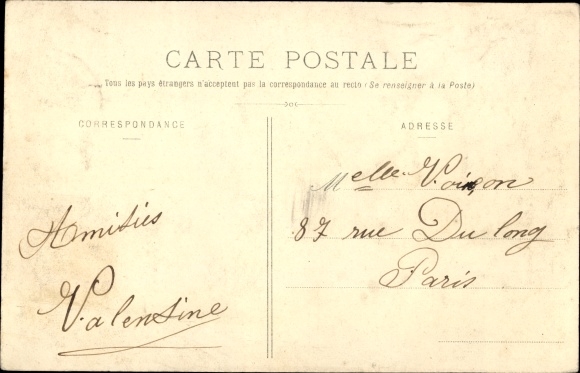 CARTE POSTALE
Tous les pays étrangers n'acceptent pas la correspondance au recto (Se renseigner à la Poste)
CORRESPONDANCE
ADRESSE
Melle Voison
87 rue Du long
Paris
Amitiés
Valentine